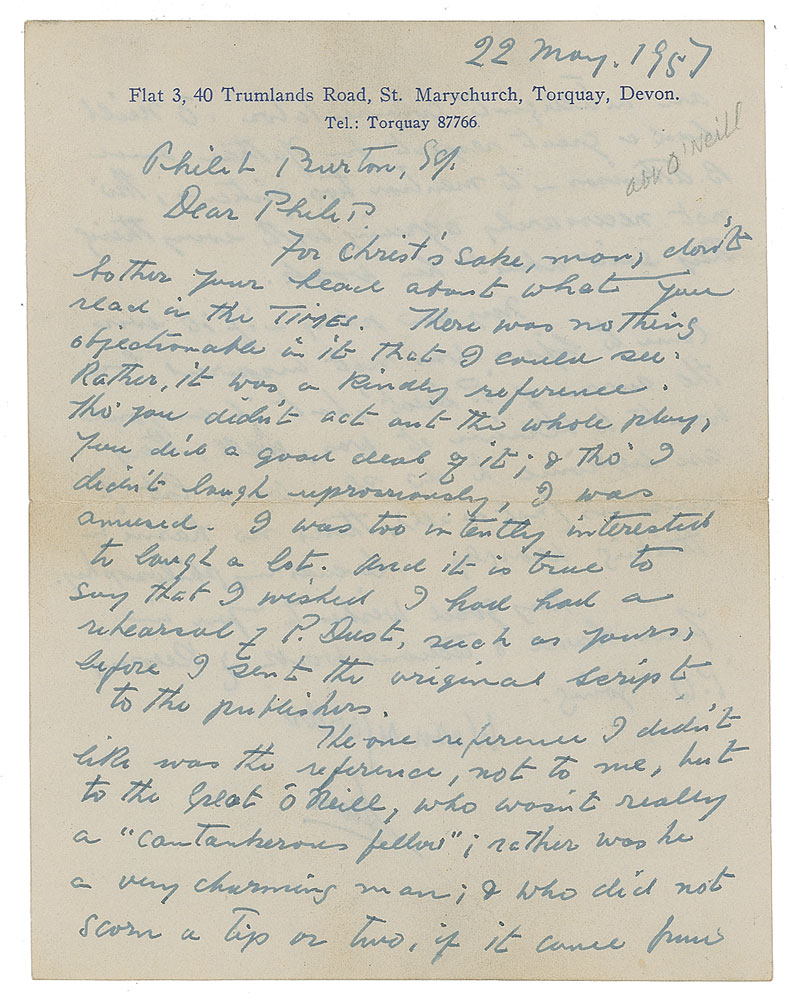 22 May. 1957
Flat 3, 40 Trumlands Road, St. Marychurch, Torquay, Devon.
Tel.: Torquay 87766
abt O'Neill
Philip Burton, Esq.
Dear Philip.
For Christ's Sake, man, don't
bother your head about what you
read in the TIMES. There was nothing
objectionable in it that I could see.
Rather, it was a kindly reference.
Tho' you didn't act out the whole play,
you did a good deal of it; & tho' I
didn't laugh uproariously, I was
amused. I was too intently interested
to laugh a lot. And it is true to
say that I wished I had had a
rehearsal of P. Dust, such as yours,
before I sent the original script
to the publishers.
The one reference I didn't
like was the reference, not to me, but
to the Great O'Neill, who wasn't really
a "cantankerous fellow"; rather was he
a very charming man; & who did not
scorn a tip or two, if it came from